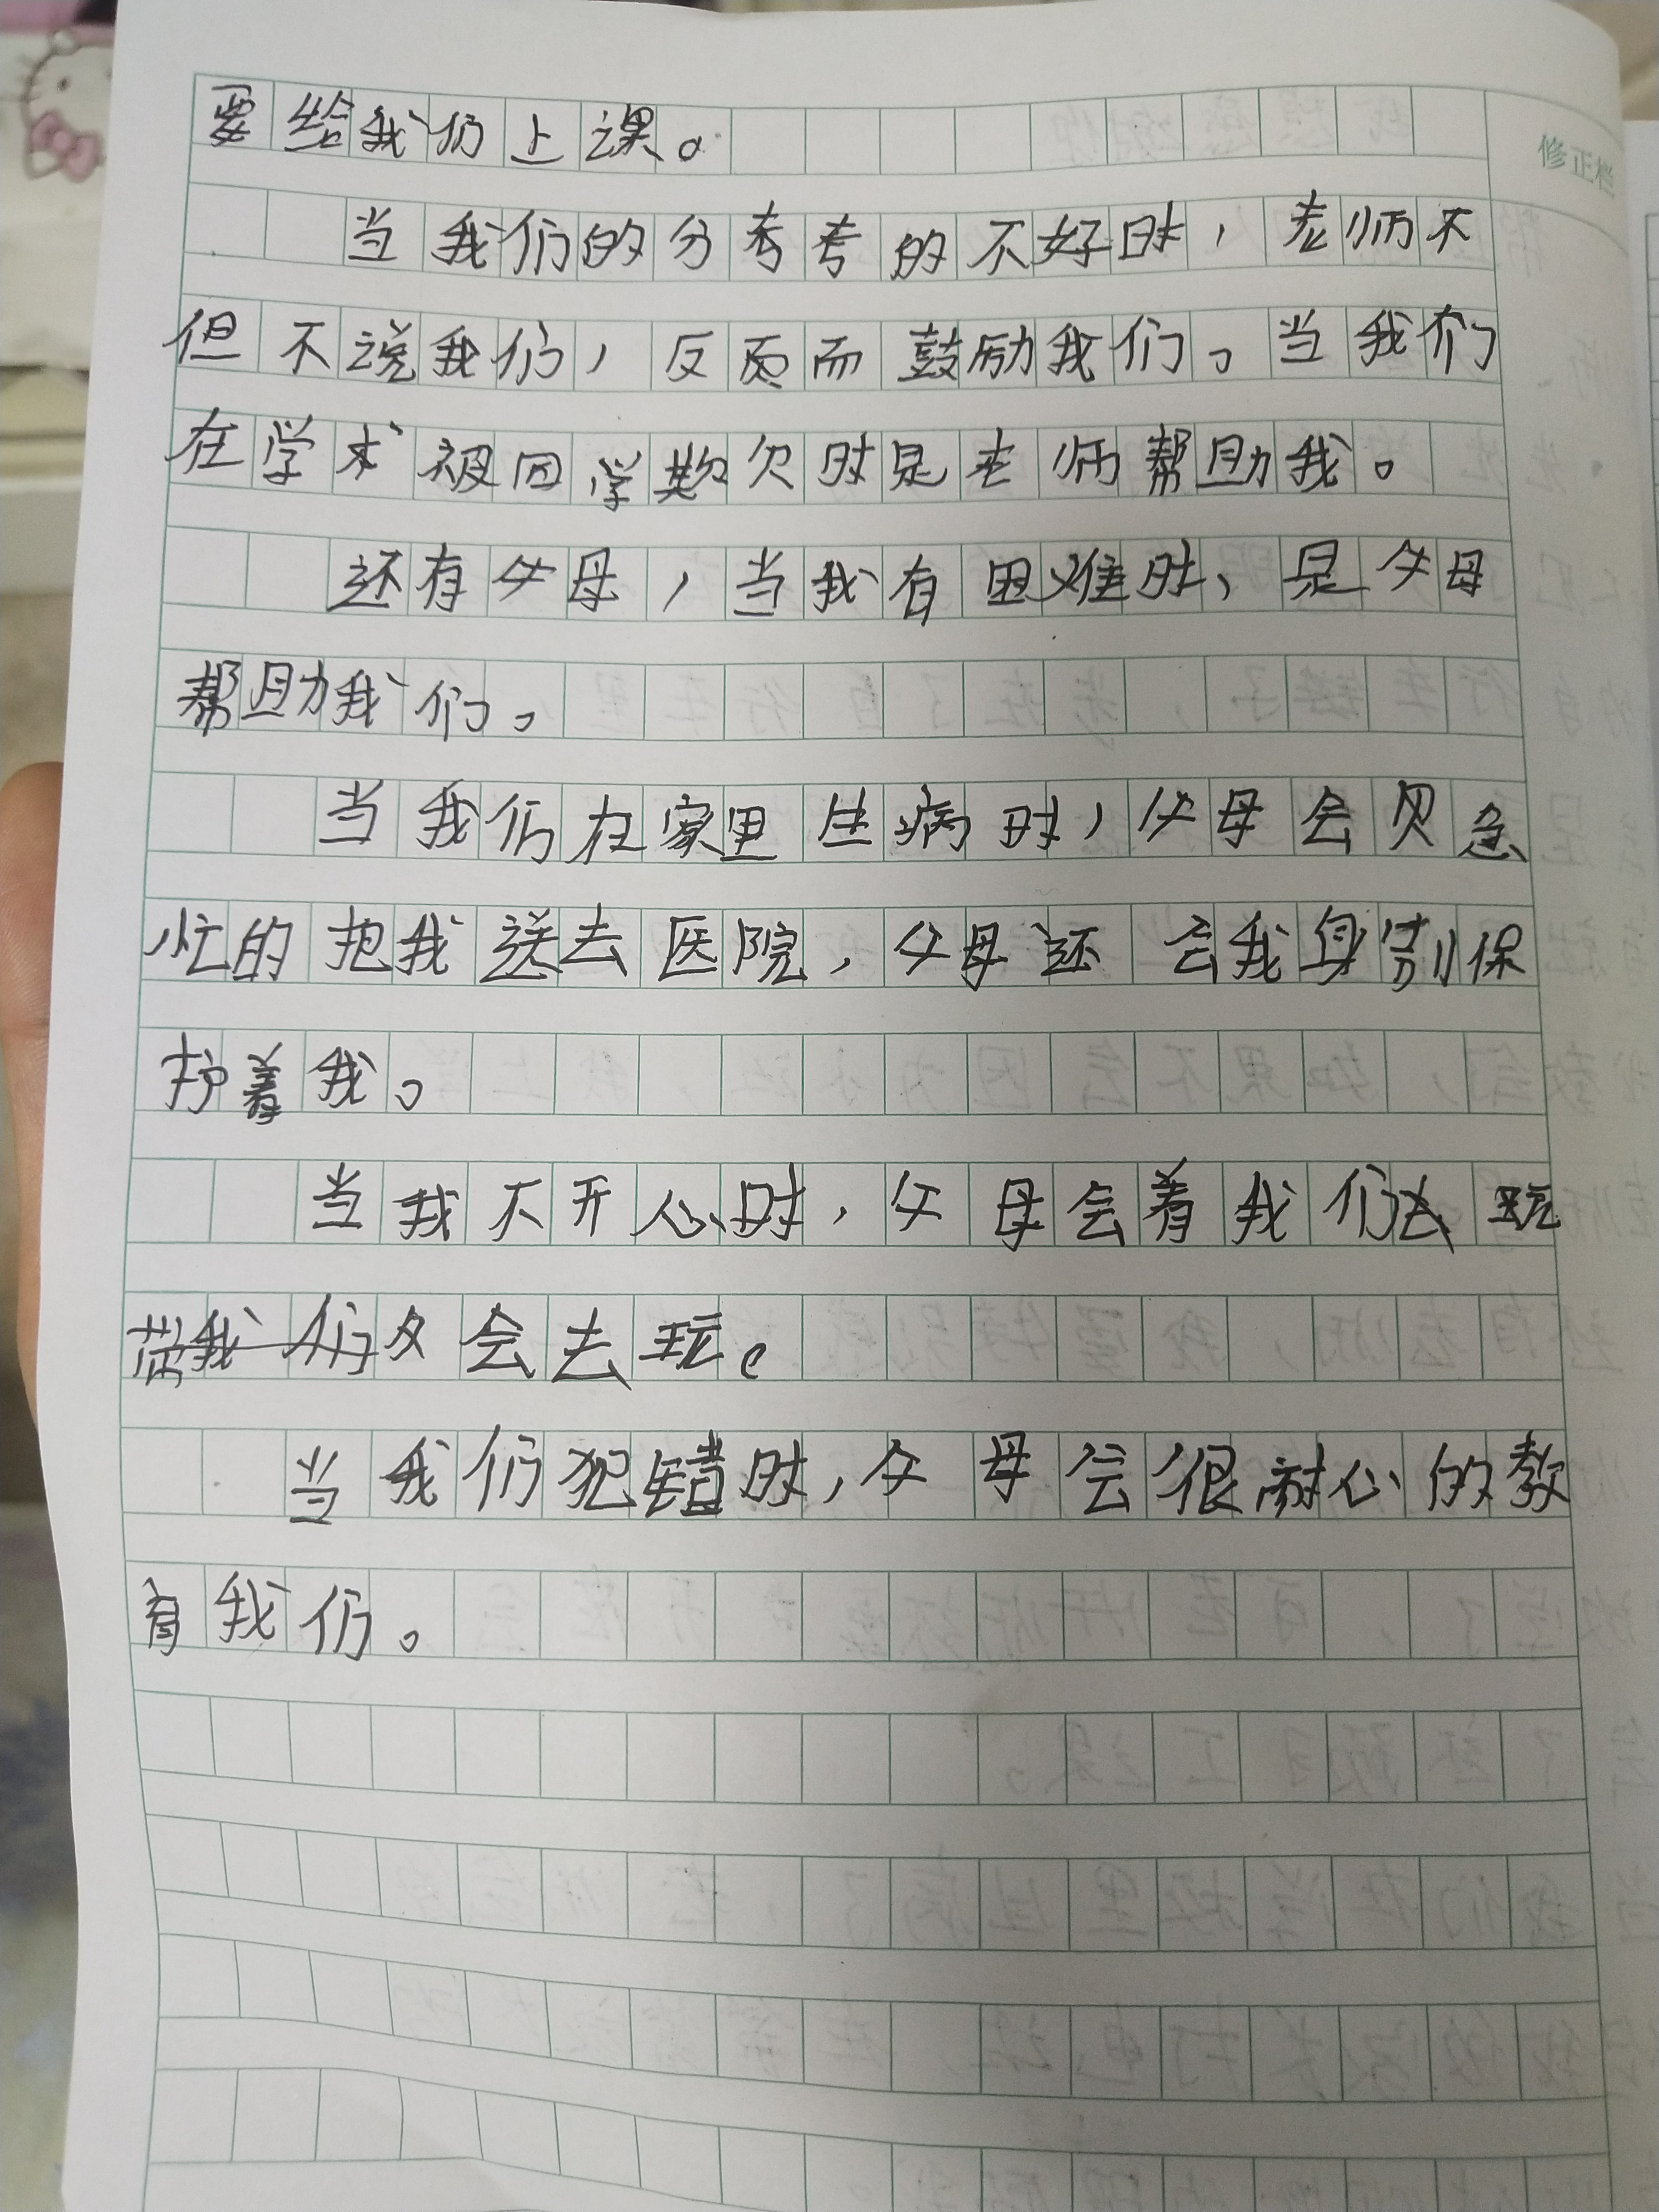 要给我们上课。
修正栏
当我们的分考考的不好时，老师不
但不说我们，反页而鼓励我们。当我们
在学术被同学欺欠时是老师帮助我。
还有父母，当我有困难时、是父母
帮助我们。
当我们在家里生病时，父母会贝急
忙的把我送去医院，父母还会我身别保
护着我。
当我不开心时，父母会着我们去玩
会去玩。
当我们犯错时，父母会很耐心的教
育我们。